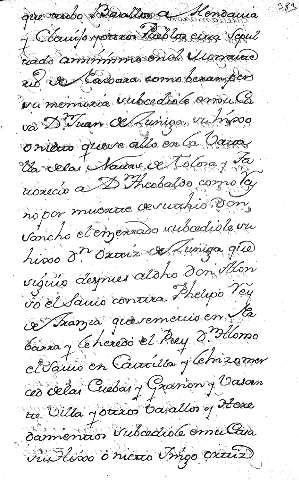 que hubo Basallos a Mendauia
y Clauijo y otros Pueblos cuia sepul
asimismo en el Monaste
rio de como
su memoria subcediole en su Ca
sa Dn Juan de Zuñiga su hijo
o nieto que se allo en la Vata
lla de las Nauas de Tolosa y fa
uorecio a Dn Theobaldo como Rey
no por muerte de su thio Don
Sancho el enzerrado subcediole su
hixo Dn Ortiz de Zuñiga que
siguio despues al dho Don Alon
so el Sauio contra Phelipo Rey
de Franzia que se metio en Na
barra y le heredó el Rey Dn Alonso
el Sauio en Castilla y le hizo mer
ced de las Cuebas y Grañon y
Villa y otros Vasallos y Here
damientos subcediole en su Casa
su Hixo o nieto Iñigo Ortiz